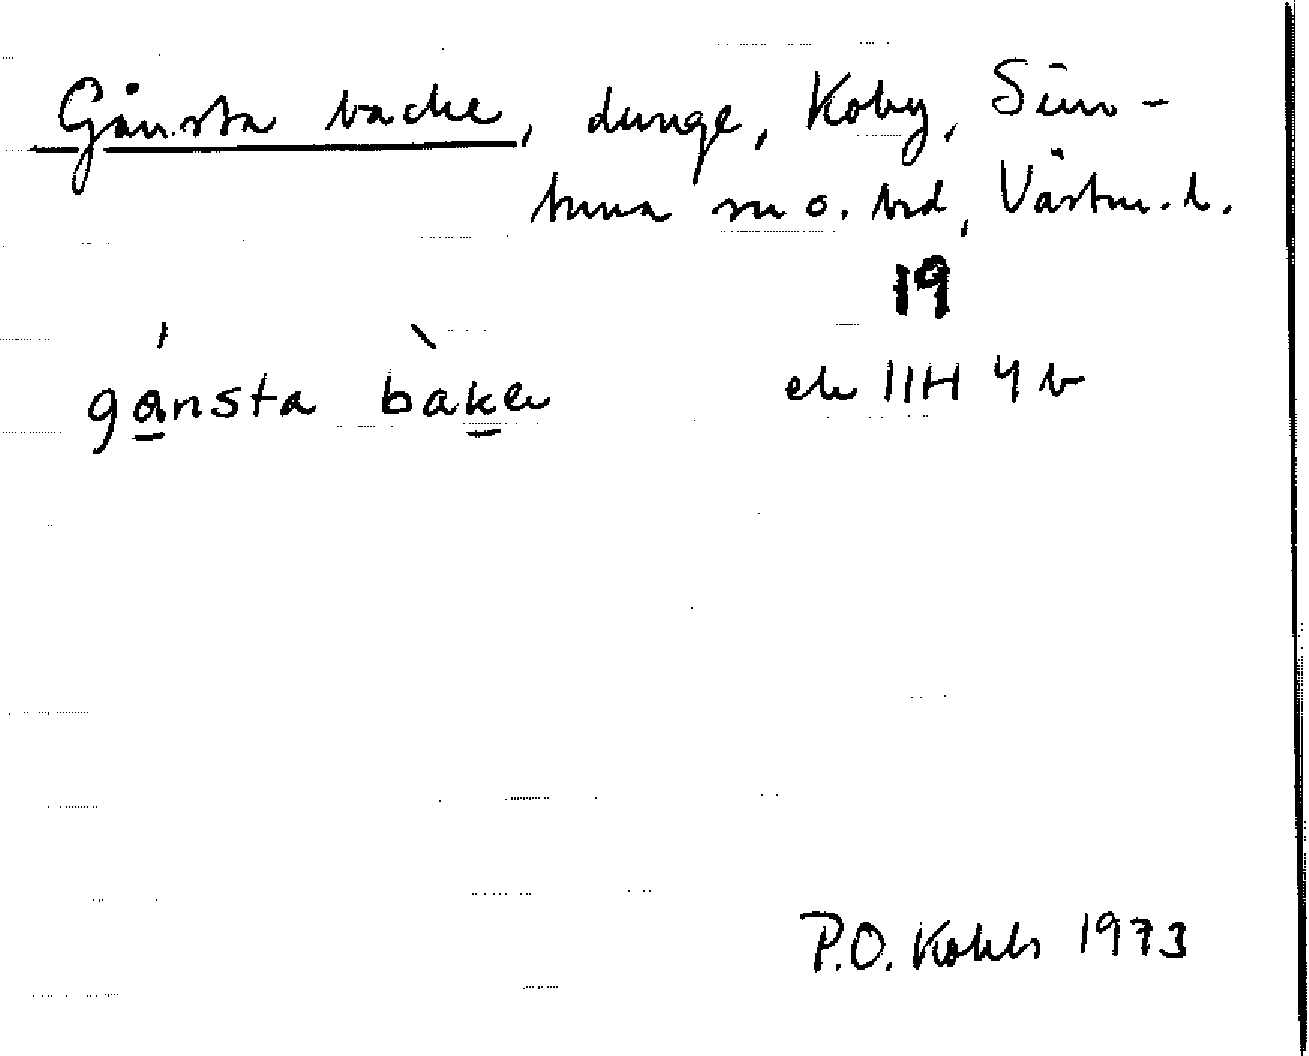 Gånsta backe, dunge, Koby, Sim-
tuna sn o. hd, Västm. l.
19
gånsta bàkɐ ek 11H 4 b
P.O. Kohls 1973